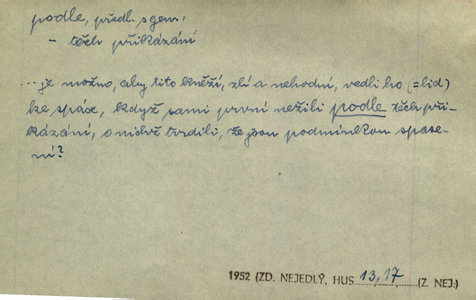 podle, předl. s gen.;
– těch přikázání
...je možno, aby tito kněží, zlí a nehodní, vedli ho (=lid)
ke spáse, když sami první nežili podle těch při-
kázání, o nichž tvrdili, že jsou podmínkou spase-
ní?
1952 (ZD. NEJEDLÝ, HUS 13,17 (Z. NEJ.)